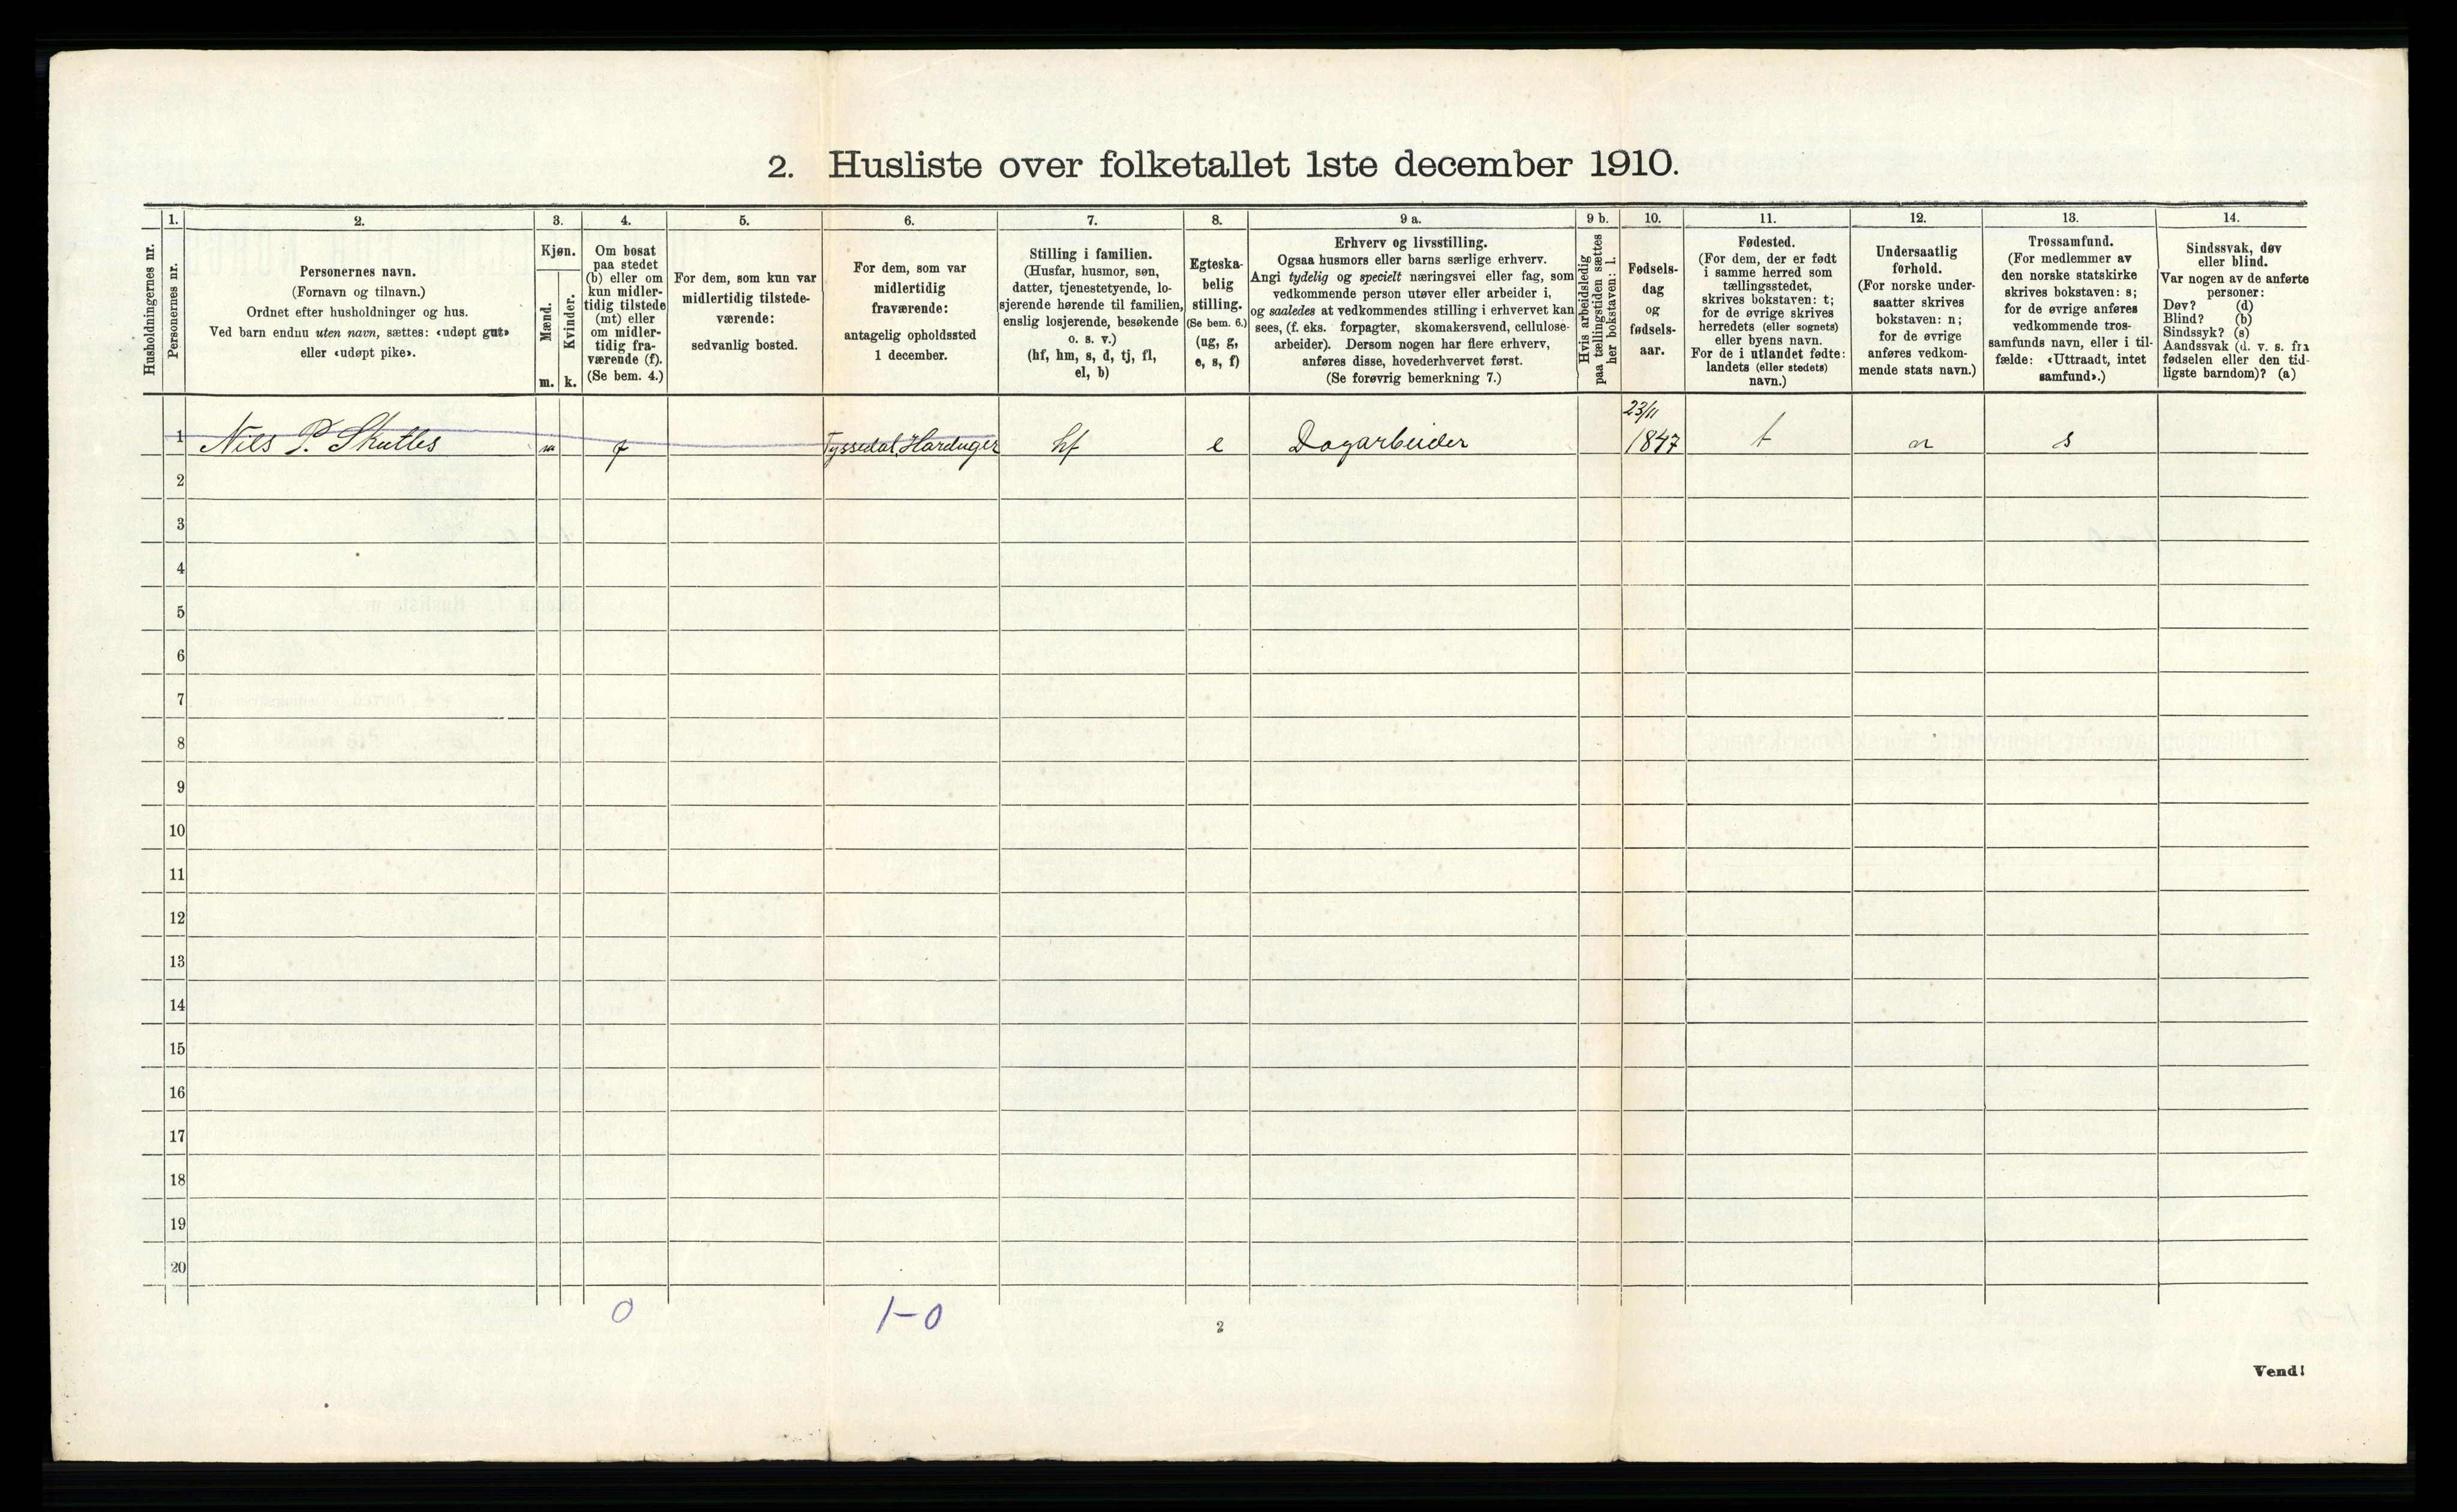 2. Husliste over folketallet 1ste december 1910.
1. 2. 3. 4. 5. 6. 7. 8. 9 a. 9 b. 10. 11. 12. 13. 14.
Husholdningernes nr.
Personernes nr.
Personernes navn.
(Fornavn og tilnavn.)
Ordnet efter husholdninger og hus.
Ved barn endnu uten navn, sættes: «udøpt gut»
eller «udøpt pike».
Kjøn.
Mænd.
Kvinder.
m. k.
Om bosat
paa stedet
(b) eller om
kun midler-
tidig tilstede
(mt) eller
om midler-
tidig fra-
værende (f).
(Se bem. 4.)
For dem, som kun var
midlertidig tilstede-
værende:
sedvanlig bosted.
For dem, som var
midlertidig
fraværende:
antagelig opholdssted
1 december.
Stilling i familien.
(Husfar, husmor, søn,
datter, tjenestetyende, lo-
sjerende hørende til familien,
enslig losjerende, besøkende
o. s. v.)
(hf, hm, s, d, tj, fl,
el, b)
Egteska-
belig
stilling.
(Se bem. 6.)
(ug, g,
e, s, f)
Erhverv og livsstilling.
Ogsaa husmors eller barns særlige erhverv.
Angi tydelig og specielt næringsvei eller fag, som
vedkommende person utøver eller arbeider i,
og saaledes at vedkommendes stilling i erhvervet kan
sees, (f. eks. forpagter, skomakersvend, cellulose-
arbeider). Dersom nogen har flere erhverv,
anføres disse, hovederhvervet først.
(Se forøvrig bemerkning 7.)
Hvis arbeidsledig
paa tællingstiden sættes
her bokstaven: l.
Fødsels-
dag
og
fødsels-
aar.
Fødested.
(For dem, der er født
i samme herred som
tællingsstedet,
skrives bokstaven: t;
for de øvrige skrives
herredets (eller sognets)
eller byens navn.
For de i utlandet fødte:
landets (eller stedets)
navn.)
Undersaatlig
forhold.
(For norske under-
saatter skrives
bokstaven: n;
for de øvrige
anføres vedkom-
mende stats navn.)
Trossamfund.
(For medlemmer av
den norske statskirke
skrives bokstaven: s;
for de øvrige anføres
vedkommende tros-
samfunds navn, eller i til-
fælde: «Uttraadt, intet
samfund».)
Sindssvak, døv
eller blind.
Var nogen av de anførte
personer:
Døv? (d)
Blind? (b)
Sindssyk? (s)
Aandssvak (d. v. s. fra
fødselen eller den tid-
ligste barndom)? (a)
23/11
1 Nils P. Skutles m f Tyssedal, Hardanger hf e Dagarbeider 1847 t n s
2
3
4
5
6
7
8
9
10
11
12
13
14
15
16
17
18
19
20
0 1-0
2
Vend!